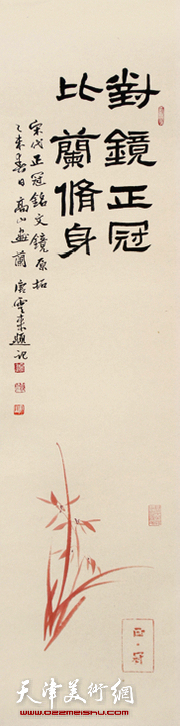 對鏡正冠
比蘭脩身
宋代正冠銘文鏡原拓
乙未春日高山畫蘭唐雲來題記
天津美術網
www.022meishu.com